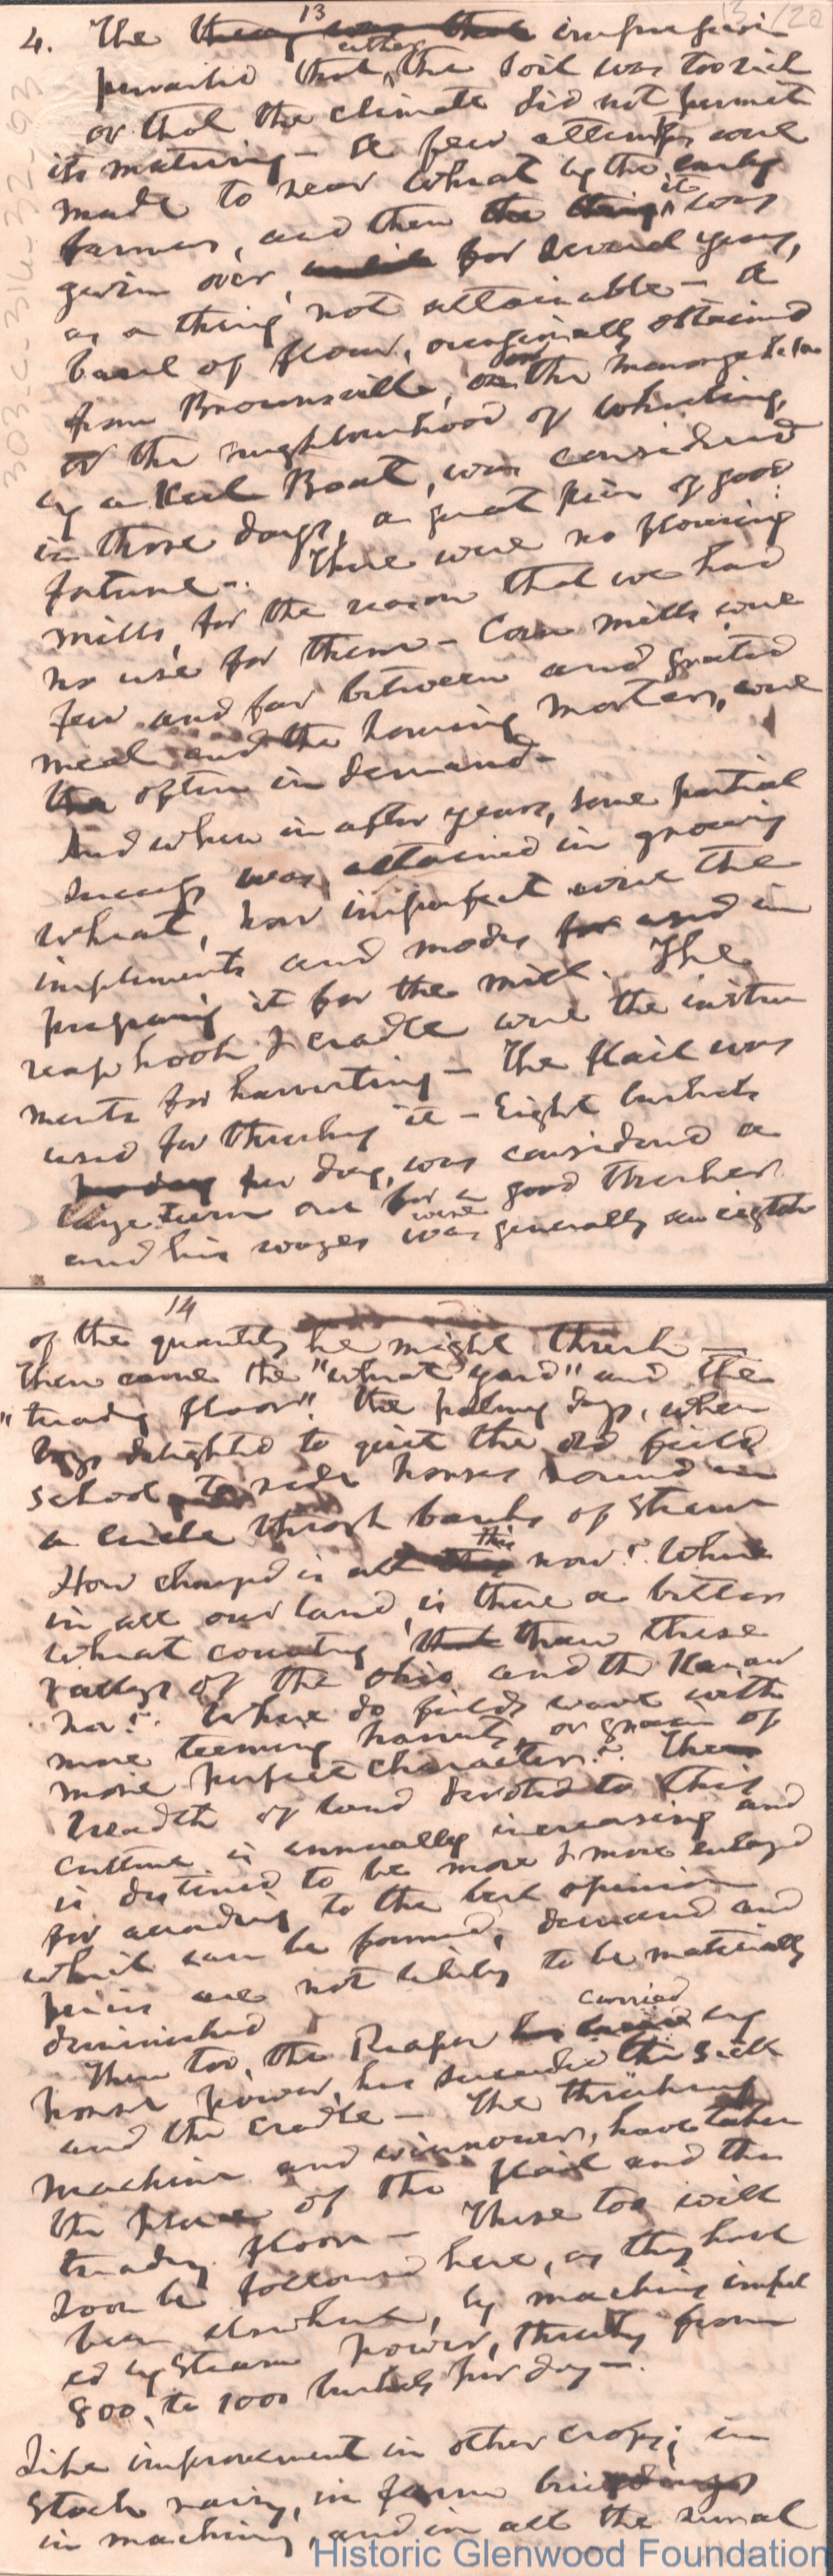 13
13/20
303-C-316-32-93
4. The theory was that impression
prevailed that either the soil was too rich
or that the climate did not permit
its maturing - A few attempts were
made to rear wheat by the early
farmers, and then the thing it was
given over, until for several years,
as a thing not attainable - A
barrel of flour, occasionally obtained
from Brownsville, on the Monongahela
to the neighbourhood of Wheeling,
by a Keel Boat, was considered
in those days, a great piece of good
fortune -. There were no flouring
mills, for the reason that we had
no use for them - Corn mills were
few and far between and grated
meal and the homing mortars, were
the often in demand -
And when in after years, some partial
success was attained in growing
wheat, how imperfect were the
implements and modes for used in
preparing it for the mill. The
reap hook & cradle were the instru
ments for harvesting - The flail was
used for thrashing it - Eight bushels
per day per day, was considered a
large turn out for a good thrasher
and his wages was were generally one eighth
14
of the quantity he might thrash -
Then came the "wheat yard" and the
"treading floor". The palmy days, when
boys delighted to quit the old field
school, to ride horses round in
a circle through banks of straw
How changed is all this now! Where
in all our land, is there a better
wheat country that than these
valleys of the Ohio and the Kanaw
ha? Where do fields wave with
more teeming harvests, or grain of
more perfect character? The
breadth of land devoted to this
culture is annually increasing and
is destined to be more & more enlarged
for according to the best opinion
which can be formed, demand and
prices are not likely to be materially
diminished
Then too, the Reaper carried by
horse power, has succeeded the sickle
and the cradle - The thrashing
machine and winnower, have taken
the place of the flail and the
treading floor - These too will
soon be followed here, as they have
been elsewhere, by machines impel
ed by Steam power, thrashing from
800, to 1000 bushels per day -.
Like improvement in other crops; in
stock raising, in farm buildings
in machinery, and in all the rural
Historic Glenwood Foundation